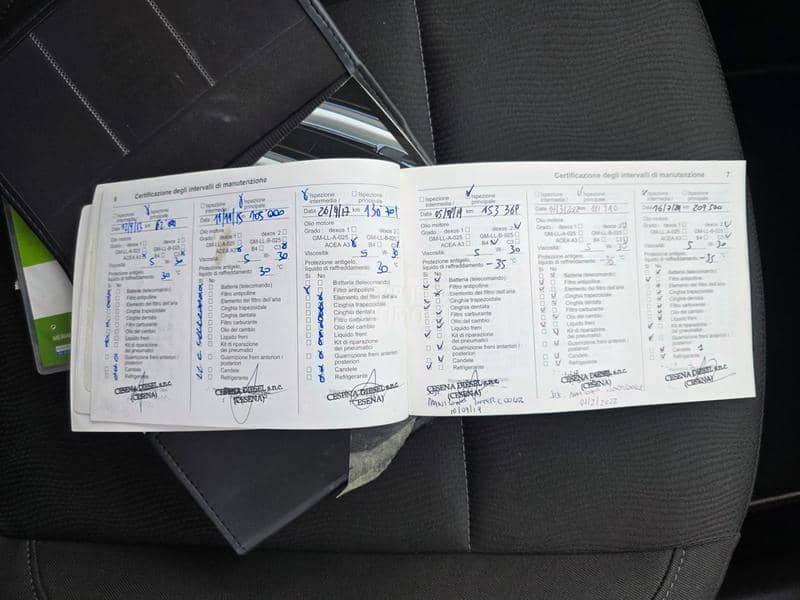 6 Certificazione degli intervalli di manutenzione
Ispezione intermedia / Ispezione principale
km
Olio motore
Grado: dexos 1 dexos 2
GM-LL-A-025 GM-LL-B-025
ACEA A3 B4 C3
Viscosità 5 W- 30
Protezione antigelo,
liquido di raffreddamento 30 °C
Sì No
Batteria (telecomando)
Filtro antipolline
Elemento del filtro dell'aria
Cinghia trapezoidale
Cinghia dentata
Filtro carburante
Olio del cambio
Liquido freni
Kit di riparazione
dei pneumatici
Guarnizione freni anteriori /
posteriori
Candele
Refrigerante
CESENA DIESEL s.n.c.
(CESENA)
Ispezione intermedia / Ispezione principale
11/11/15 105 000
Olio motore
Grado: dexos 1 dexos 2
GM-LL-A-025 GM-LL-B-025
ACEA A3 B4 C3
Viscosità 5 W- 30
Protezione antigelo,
liquido di raffreddamento 30 °C
Sì No
Batteria (telecomando)
Filtro antipolline
Elemento del filtro dell'aria
Cinghia trapezoidale
Cinghia dentata
Filtro carburante
Olio del cambio
Liquido freni
Kit di riparazione
dei pneumatici
Guarnizione freni anteriori /
posteriori
Candele
Refrigerante
CESENA DIESEL s.n.c.
(CESENA)
Ispezione intermedia / Ispezione principale
Data 26/9/17 km
Olio motore
Grado: dexos 1 dexos 2
GM-LL-A-025 GM-LL-B-025
ACEA A3 B4 C3
Viscosità 5 W- 30
Protezione antigelo,
liquido di raffreddamento 30 °C
Sì No
Batteria (telecomando)
Filtro antipolline
Elemento del filtro dell'aria
Cinghia trapezoidale
Cinghia dentata
Filtro carburante
Olio del cambio
Liquido freni
Kit di riparazione
dei pneumatici
Guarnizione freni anteriori /
posteriori
Candele
Refrigerante
CESENA DIESEL s.n.c.
(CESENA)
Certificazione degli intervalli di manutenzione 7
Ispezione intermedia / Ispezione principale
Data km
Olio motore
Grado: dexos 1 dexos 2
GM-LL-A-025 GM-LL-B-025
ACEA A3 B4 C3
Viscosità 5 W- 30
Protezione antigelo,
liquido di raffreddamento -35 °C
Sì No
Batteria (telecomando)
Filtro antipolline
Elemento del filtro dell'aria
Cinghia trapezoidale
Cinghia dentata
Filtro carburante
Olio del cambio
Liquido freni
Kit di riparazione
dei pneumatici
Guarnizione freni anteriori /
posteriori
Candele
Refrigerante
CESENA DIESEL s.n.c.
(CESENA)
10/09/19
Ispezione intermedia / Ispezione principale
Data km
Olio motore
Grado: dexos 1 dexos 2
GM-LL-A-025 GM-LL-B-025
ACEA A3 B4 C3
Viscosità 5 W- 30
Protezione antigelo,
liquido di raffreddamento
Sì No
Batteria (telecomando)
Filtro antipolline
Elemento del filtro dell'aria
Cinghia trapezoidale
Cinghia dentata
Filtro carburante
Olio del cambio
Liquido freni
Kit di riparazione
dei pneumatici
Guarnizione freni anteriori /
posteriori
Candele
Refrigerante
CESENA DIESEL s.n.c.
(CESENA)
Ispezione intermedia / Ispezione principale
209 500
Olio motore
Grado: dexos 1 dexos 2
GM-LL-A-025 GM-LL-B-025
ACEA A3 B4 C3
Viscosità 5 W- 30
Protezione antigelo,
liquido di raffreddamento -35 °C
Sì No
Batteria (telecomando)
Filtro antipolline
Elemento del filtro dell'aria
Cinghia trapezoidale
Cinghia dentata
Filtro carburante
Olio del cambio
Liquido freni
Kit di riparazione
dei pneumatici
Guarnizione freni anteriori /
posteriori
Candele
Refrigerante
CESENA DIESEL s.n.c.
(CESENA)